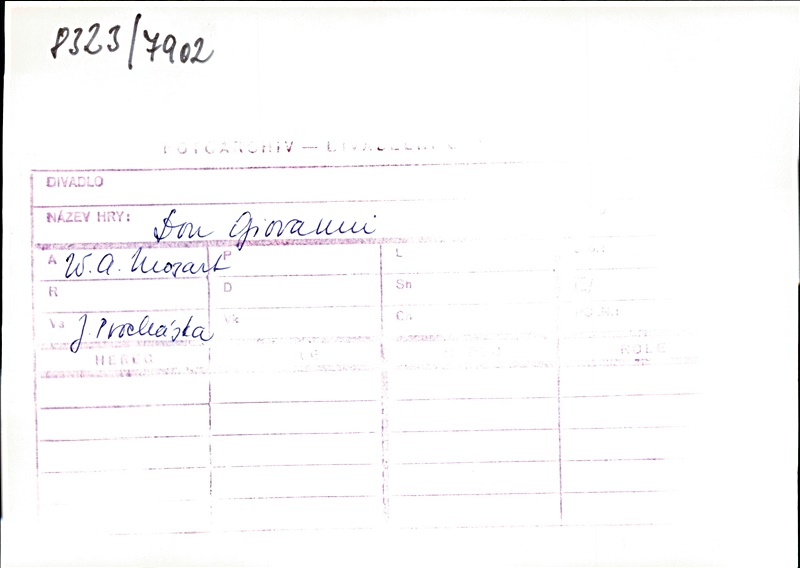 8323/7902
FOTOARCHIV —
DIVADLO
NÁZEV HRY: Don Giovanni
A W. A. Mozart P L
R D Sn
Vs J. Procházka Vk Ch
HEREC ROLE